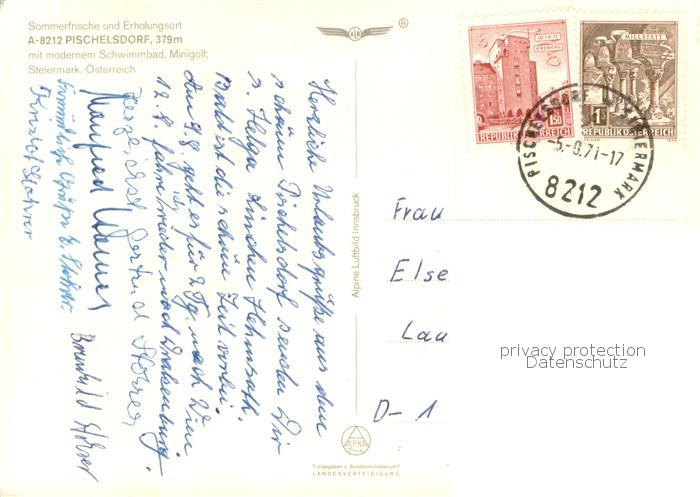 Sommerfrische und Erholungsort
A-8212 PISCHELSDORF, 379m
mit modernem Schwimmbad, Minigolf;
Steiermark, Österreich
®
WIEN
ERDBERG
1.50
REPUBLIK ÖSTERREICH
MILLSTATT
1S
REPUBLIK ÖSTERREICH
PISCHELSDORF STEIERMARK
-5.-8.71-17
8212
Herzliche Urlaubsgrüße aus dem
schönen Pischelsdorf senden Dir
s. Helga
Bald ist die schöne Zeit vorbei.
Am 9.8. geht es für 2 Tg. nach Wien
12.8. fahre ich wieder nach
Gertrud
Manfred
Brunhild
Alpine Luftbild Innsbruck
Frau
Else
Lau
D- 1
privacy protection
Datenschutz
ALPINE
Freigegeben v. Bundesministerium f.
LANDESVERTEIDIGUNG